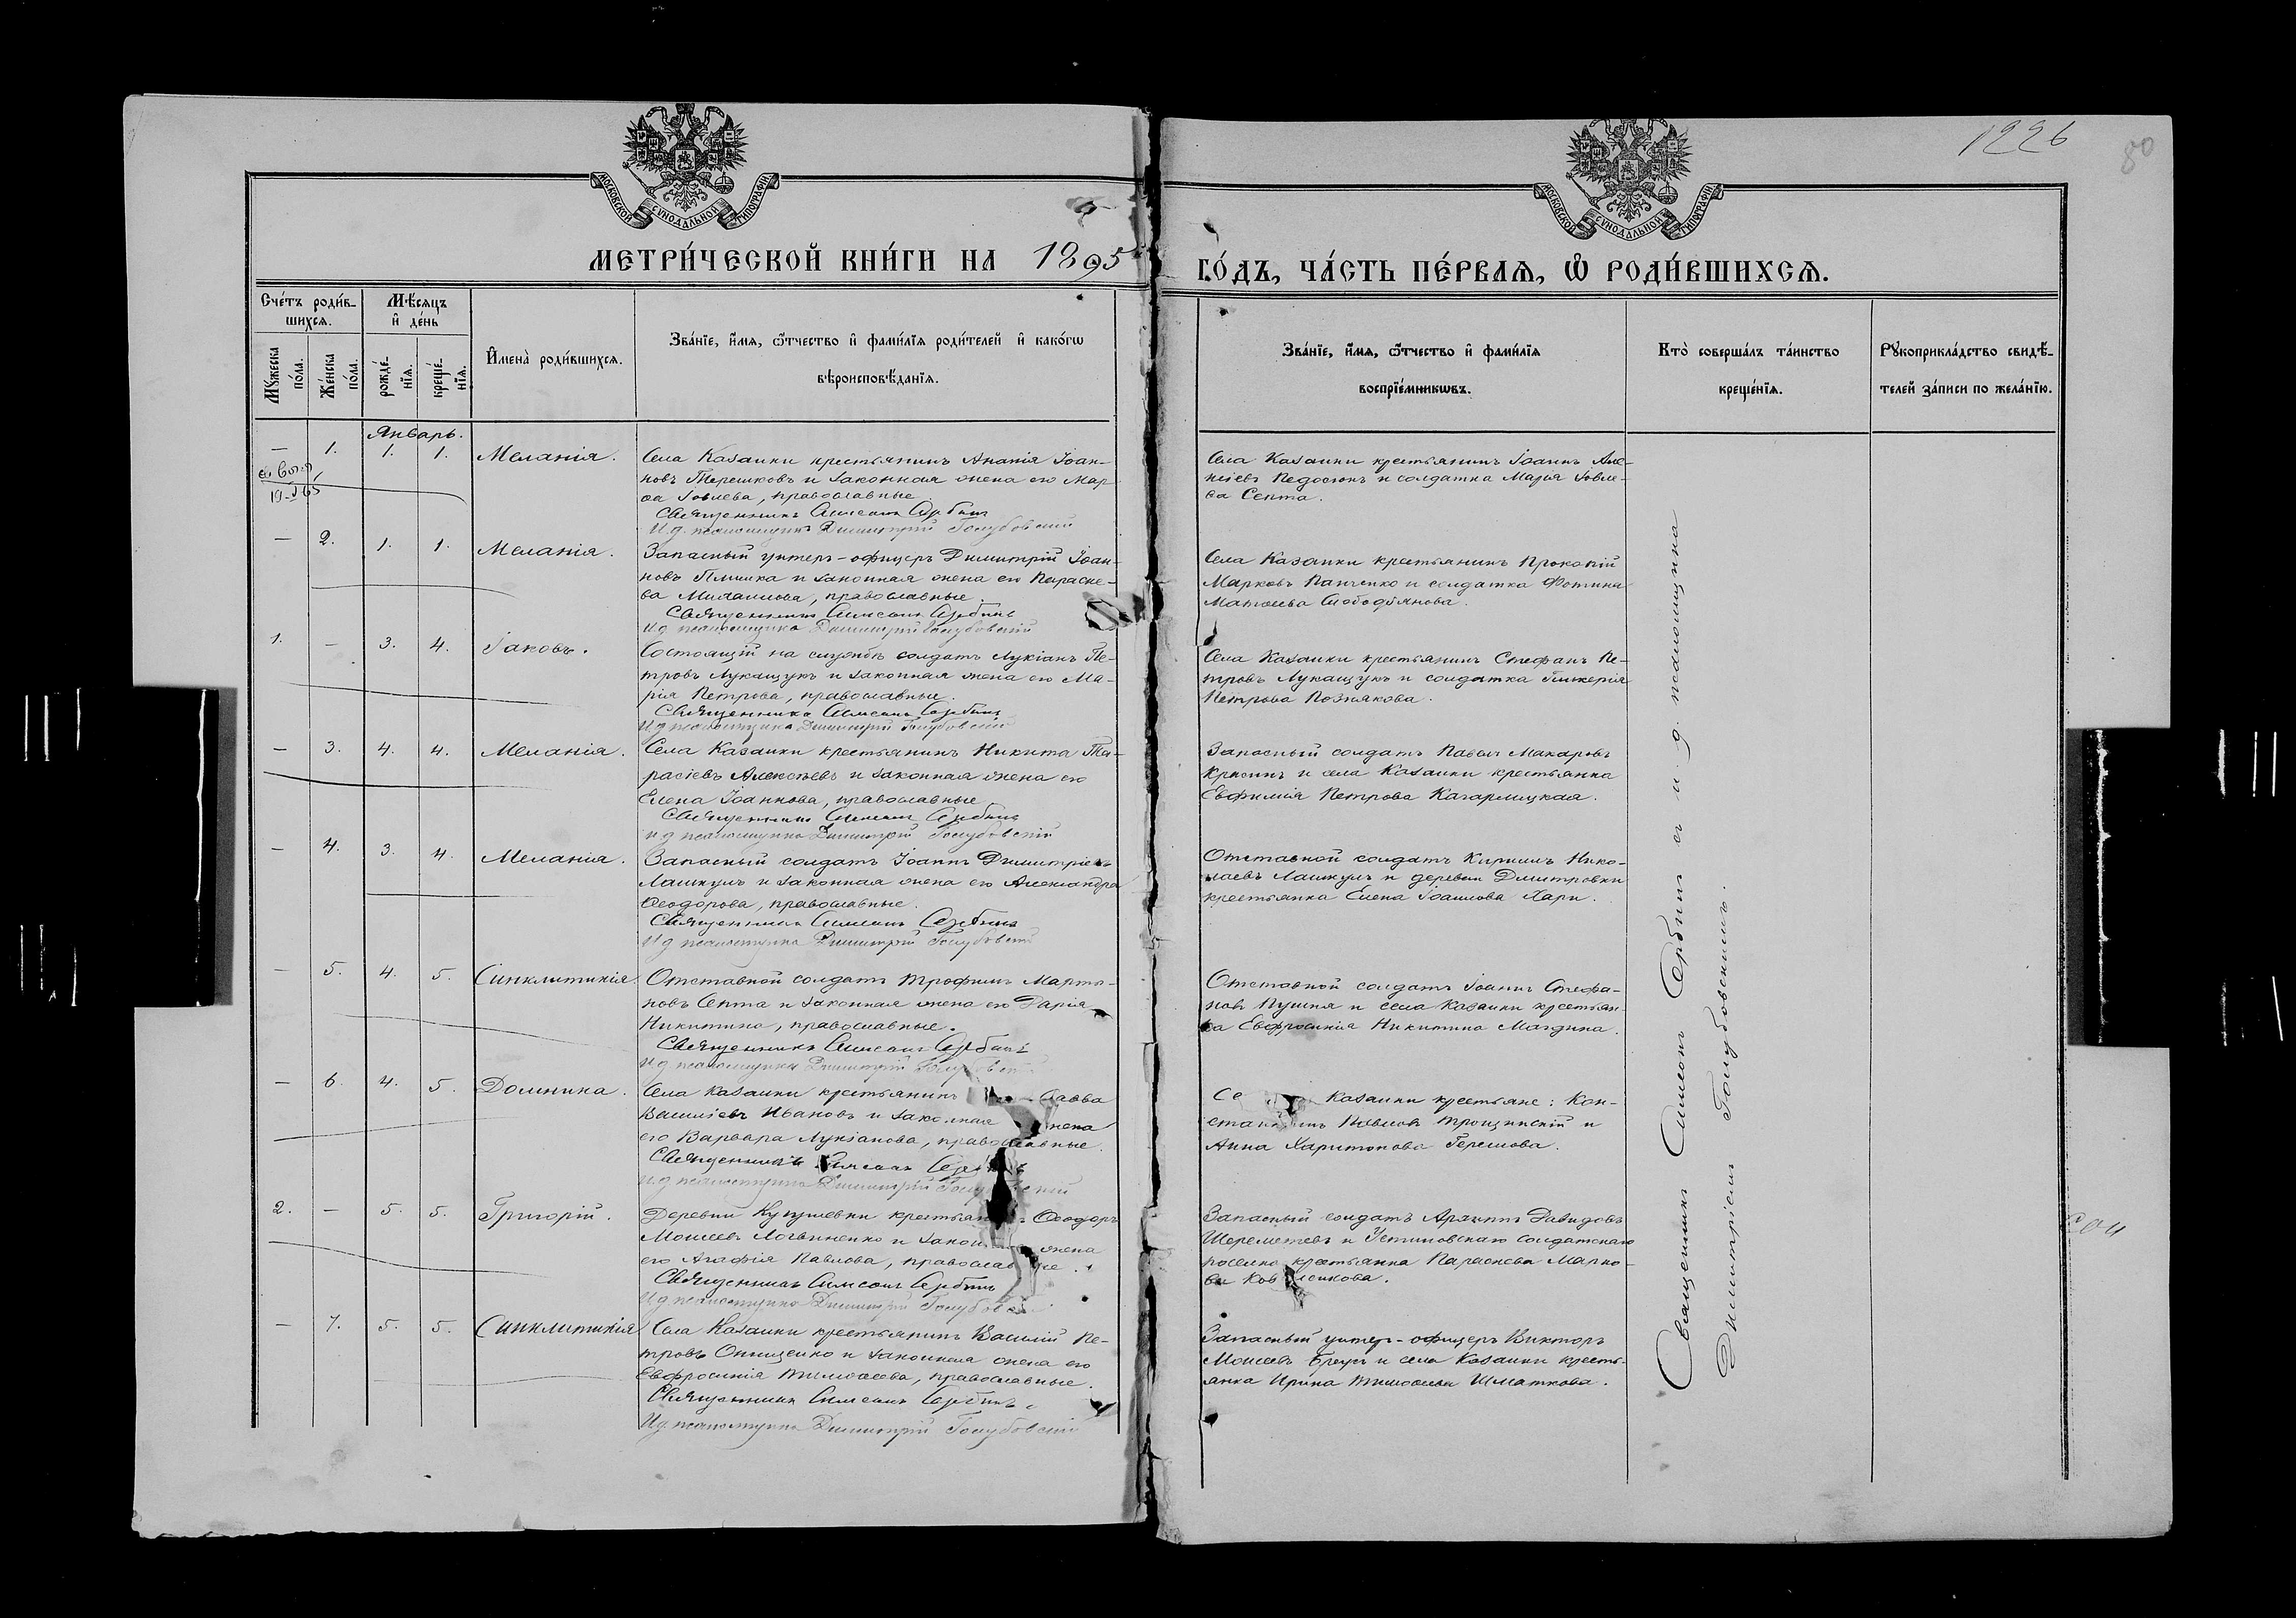 1226
80
МОСКОВСКОЙ СѴНОДАЛЬНОЙ ТИПОГРАФІИ
МОСКОВСКОЙ СѴНОДАЛЬНОЙ ТИПОГРАФІИ
МЕТРИ́ЧЕСКОЙ КНИ́ГИ НА 1895
ГО́ДЪ, ЧА́СТЬ ПЕ́РВАѦ, Ѡ҆ РОДИ́ВШИХСѦ.
Сче́тъ роди́в-
шихсѧ.
Мꙋ́жеска
по́ла.
Же́нска
по́ла.
Мѣ́сѧцъ
и҆ де́нь
рожде́-
нїѧ.
креще́-
нїѧ.
И҆мена̀ роди́вшихсѧ.
Зва́нїе, и҆́мѧ, ѻ҆́тчество и҆ фами́лїѧ роди́телей и҆ како́гѡ
вѣроисповѣ́данїѧ.
Зва́нїе, и҆́мѧ, ѻ҆́тчество и҆ фами́лїѧ
воспрїе́мникѡвъ.
Кто̀ соверша́лъ та́инство
креще́нїѧ.
Рꙋкоприкла́дство свидѣ́-
телей за́писи по жела́нїю.
Январь.
— 1. 1. 1. Меланія.
Села Казанки крестьянинъ Ананія Іоан-
новъ Терешковъ и законная жена его Мар-
ѳа Іовлева, православные
Священникъ Симеонъ Сербинъ
И д псаломщика Димитрій Голубовскій
Села Казанки крестьянинъ Іоаннъ Але-
ксіевъ и солдатка Марія Іовле-
ва Септа.
— 2. 1. 1. Меланія.
Запасный унтеръ-офицеръ Димитрій Іоан-
новъ и законная жена его Параске-
ва Михаилова, православные.
Священникъ Симеонъ Сербинъ
И д псаломщика Димитрій Голубовскій
Села Казанки крестьянинъ Прокопій
Марковъ Панченко и солдатка Фотина
Матѳеева Слободянова.
1. — 3. 4. Іаковъ.
Состоящій на службѣ солдатъ Лукіанъ Пе-
тровъ Лукащукъ и законная жена его Ма-
рія Петрова, православные.
Священникъ Симеонъ Сербинъ
И д псаломщика Димитрій Голубовскій
Села Казанки крестьянинъ Стефанъ Пе-
тровъ Лукащукъ и солдатка Гликерія
Петрова Познякова.
— 3. 4. 4. Меланія.
Села Казанки крестьянинъ Никита Та-
расіевъ Алексѣевъ и законная жена его
Елена Іоаннова, православные
Священникъ Симеонъ Сербинъ
и д псаломщика Димитрій Голубовскій
Запасный солдатъ Павелъ Макаровъ
и села Казанки крестьянка
Евфимія Петрова Кагарлицкая.
— 4. 3. 4. Меланія.
Запасный солдатъ Іоаннъ Димитріевъ
Лашкулъ и законная жена его Александра
Ѳеодорова, православные.
Священникъ Симеонъ Сербинъ
И д псаломщика Димитрій Голубовскій
Отставной солдатъ Кириллъ Нико-
лаевъ Лашкулъ и деревни Дмитровки
крестьянка Елена Іоаннова Хари.
— 5. 4. 5. Синклитикія.
Отставной солдатъ Трофимъ Марти-
новъ Септа и законная жена его Дарія
Никитина, православные.
Священникъ Симеонъ Сербинъ
И д псаломщика Димитрій
Отставной солдатъ Іоаннъ Стефа-
новъ Пушня и села Казанки крестьян-
ка Евфросинія Никитина Магдина.
— 6. 4. 5. Домника.
Села Казанки крестьянинъ Савва
Василіевъ Ивановъ и законная жена
его Варвара Лукіанова, православные.
Священникъ Симеонъ
И д псаломщика Димитрій
Казанки крестьяне: Кон-
стантинъ Павловъ Трощинскій и
Анна Харитонова Терешова.
2. — 5. 5. Григорій.
Деревни крестьянинъ Ѳеодоръ
Моисеевъ Логвиненко и жена
его Агафія Павлова, православные.
Священникъ Симеонъ Сербинъ
И д псаломщика Димитрій
Запасный солдатъ Архипъ Давидовъ
Шереметевъ и Устиновскаго солдатскаго
поселка крестьянка Параскева Марко-
ва
— 7. 5. 5. Синклитикія
Села Казанки крестьянинъ Василій Пе-
тровъ Онищенко и законная жена его
Евфросинія Тимоѳеева, православные.
Священникъ Симеонъ Сербинъ
И д псаломщика Димитрій Голубовскій
Запасный унтер-офицеръ Викторъ
Моисеевъ и села Казанки кресть-
янка Ирина Тимоѳеева Шматкова.
Священникъ Симеонъ Сербинъ съ и. д. псаломщика
Димитріемъ Голубовскимъ.